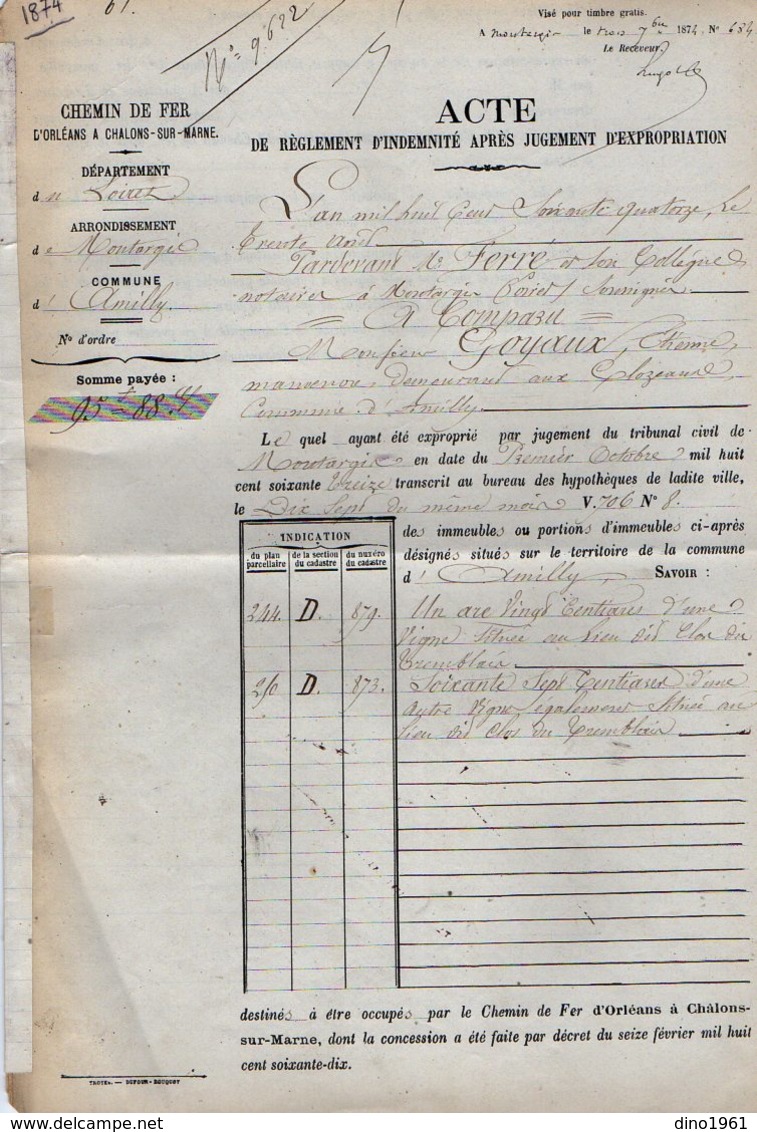 1874
61.
N° 9.622
Visé pour timbre gratis.
A Montargis le trois 7bre 1874 N° 684
Le Receveur,
CHEMIN DE FER
D'ORLÉANS A CHALONS-SUR-MARNE.
DÉPARTEMENT
du Loiret
ARRONDISSEMENT
de Montargis
COMMUNE
d' Amilly
N° d'ordre
Somme payée :
95 f 88 c
ACTE
DE RÈGLEMENT D'INDEMNITÉ APRÈS JUGEMENT D'EXPROPRIATION
L'an mil huit Cent Soixante quatorze, Le
Trente Avril
Pardevant Me Ferré et Son Collègue
notaires à Montargis (Loiret) Soussignés
= A Comparu =
Monsieur GOYAUX, Etienne
manoeuvre, demeurant aux Clozeaux,
Commune d'Amilly.
Le quel ayant été exproprié par jugement du tribunal civil de
Montargis en date du Premier Octobre mil huit
cent soixante treize transcrit au bureau des hypothèques de ladite ville,
le Dix Sept du même mois V. 706 N° 8.
INDICATION
du plan parcellaire
de la section du cadastre
du numéro du cadastre
des immeubles ou portions d'immeubles ci-après
désignés situés sur le territoire de la commune
d' Amilly, SAVOIR :
244. D. 879. Un are Vingt Centiares d'une
Vigne Située au lieu dit Clos du
Tremblais
250 D. 873. Soixante Sept Centiares d'une
autre Vigne également Située au
lieu dit Clos du Tremblais
destinés à être occupés par le Chemin de Fer d'Orléans à Châlons-
sur-Marne, dont la concession a été faite par décret du seize février mil huit
cent soixante-dix.
TROYES. — DUFOUR-BOUQUOT
dino1961